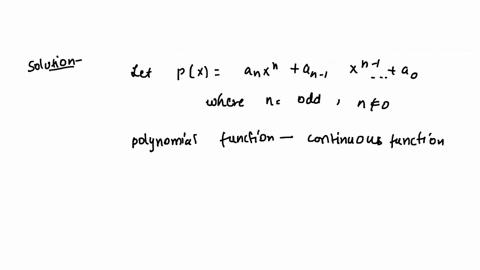 Solution-
Let p(x) = aₙxⁿ + aₙ₋₁ xⁿ⁻¹ ... + a₀
where n = odd , n ≠ 0
polynomial function — continuous function